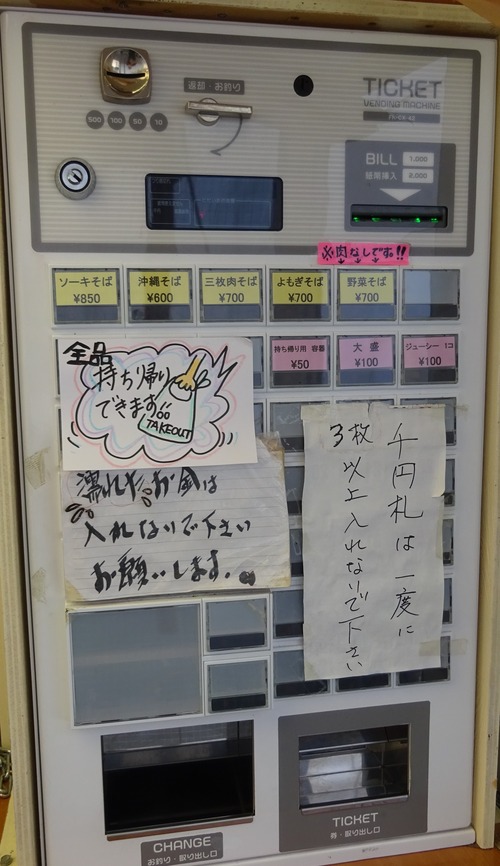 返却・お釣り
500 100 50 10
TICKET
VENDING MACHINE
BILL
紙幣挿入
1,000
2,000
※肉なしです!!
ソーキそば
¥850
沖縄そば
¥600
三枚肉そば
¥700
よもぎそば
¥700
野菜そば
¥700
持ち帰り用 容器
¥50
大盛
¥100
ジューシー 1コ
¥100
全品
持ち帰り
できます!!
TAKEOUT
濡れたお金は
入れないで下さい
お願いします。
千円札は一度に
3枚以上入れないで下さい
CHANGE
お釣り・取り出し口
TICKET
券・取り出し口